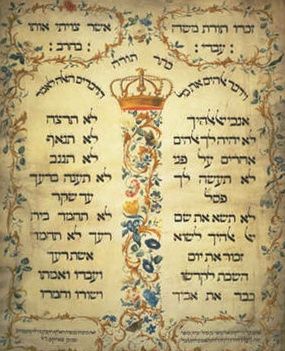 זכרו תורת משה
עבדי:
אשר צויתי אותו
בחרב:
כתר תורה
וידבר אלהים את כל
הדברים האלה לאמר
אנכי אלהיך
לא יהיה לך אלהים
אחרים על פני
לא תעשה לך
פסל
לא תשא את שם
אלהיך לשוא
זכור את יום
השבת לקדשו
כבד את אביך
לא תרצח
לא תנאף
לא תגנב
לא תענה ברעך
עד שקר
לא תחמד בית
רעך לא תחמד
אשת רעך
ועבדו ואמתו
ושורו וחמרו